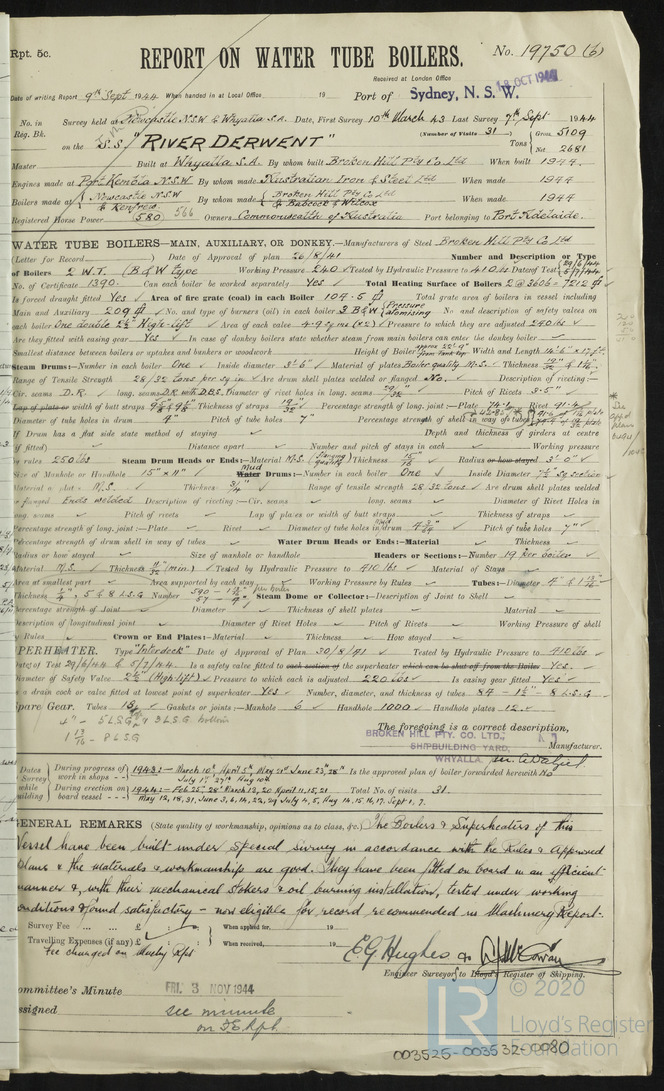 Rpt. 5c.
REPORT ON WATER TUBE BOILERS.
No. 19750 (b)
Received at London Office
18 OCT 1944
Date of writing Report 9th Sept 1944 When handed in at Local Office 19 Port of Sydney, N.S.W.
No. in Survey held at Newcastle N.S.W & Whyalla S.A. Date, First Survey 10th March 43 Last Survey 7th Sept 1944
Reg. Bk. (Number of Visits 31)
on the S.S. "RIVER DERWENT" Tons Gross 5109 Net 2681
Master Built at Whyalla S.A. By whom built Broken Hill Pty Co Ltd When built 1944
Engines made at Port Kembla N.S.W By whom made Australian Iron & Steel Ltd When made 1944
Boilers made at Newcastle N.S.W & Renfrew By whom made Broken Hill Pty Co Ltd & Babcock & Wilcox When made 1944
Registered Horse Power 580 566 Owners Commonwealth of Australia Port belonging to Port Adelaide.
WATER TUBE BOILERS—MAIN, AUXILIARY, OR DONKEY.—Manufacturers of Steel Broken Hill Pty Co Ltd
(Letter for Record ) Date of Approval of plan 26/8/41 Number and Description or Type
of Boilers 2 W.T. (B & W type Working Pressure 240 Tested by Hydraulic Pressure to 410 lbs Date of Test 29/6/44 5/7/44
No. of Certificate 1390. Can each boiler be worked separately Yes Total Heating Surface of Boilers 2 @ 3606 = 7212
Is forced draught fitted Yes Area of fire grate (coal) in each Boiler 104.5 Total grate area of boilers in vessel including
Main and Auxiliary 209 No. and type of burners (oil) in each boiler 3 B&W Pressure atomising No and description of safety valves on
each boiler One double 2½" High-lift Area of each valve 4.9 sq ins (x2) Pressure to which they are adjusted 240 lbs
Are they fitted with easing gear Yes In case of donkey boilers state whether steam from main boilers can enter the donkey boiler
Smallest distance between boilers or uptakes and bunkers or woodwork Height of Boiler Width and Length
Steam Drums:—Number in each boiler One Inside diameter 3'-6" Material of plates Boiler quality M.S. Thickness
Range of Tensile Strength 28/32 tons per sq in Are drum shell plates welded or flanged No. Description of riveting:—
Cir. seams D.R. long. seams D.R. with D.B.S. Diameter of rivet holes in long. seams Pitch of Rivets
Lap of plate or width of butt straps Thickness of straps Percentage strength of long. joint:—Plate Rivet
Diameter of tube holes in drum 4" Pitch of tube holes 7" Percentage strength of shell in way of tubes
If Drum has a flat side state method of staying Depth and thickness of girders at centre
(if fitted) Distance apart Number and pitch of stays in each Working pressure
by rules 250 lbs Steam Drum Heads or Ends:—Material M.S. Thickness 15/16 Radius or how stayed 3'-0"
Size of Manhole or Handhole 15" x 11" Mud Water Drums:—Number in each boiler One Inside Diameter 7½" sq section
Material of plates M.S. Thickness 3/4" Range of tensile strength 28.32 tons Are drum shell plates welded
or flanged Ends welded Description of riveting:—Cir. seams long. seams Diameter of Rivet Holes in
long. seams Pitch of rivets Lap of plates or width of butt straps Thickness of straps
Percentage strength of long. joint:—Plate Rivet Diameter of tube holes in drum Pitch of tube holes 7"
Percentage strength of drum shell in way of tubes Water Drum Heads or Ends:—Material Thickness
Radius or how stayed Size of manhole or handhole Headers or Sections:—Number 19 per boiler
Material M.S. Thickness (min.) Tested by Hydraulic Pressure to 410 lbs Material of Stays
Area at smallest part Area supported by each stay Working Pressure by Rules Tubes:—Diameter 4" & 1 13/16"
Thickness ¼", 5 & 8 L.S.G Number per boiler Steam Dome or Collector:—Description of Joint to Shell
Percentage strength of Joint Diameter Thickness of shell plates Material
Description of longitudinal joint Diameter of Rivet Holes Pitch of Rivets Working Pressure of shell
by Rules Crown or End Plates:—Material Thickness How stayed
SUPERHEATER. Type "Interdeck" Date of Approval of Plan 30/8/41 Tested by Hydraulic Pressure to 410 lbs
Date of Test 29/6/44 & 5/7/44 Is a safety valve fitted to each section of the superheater which can be shut off from the Boiler Yes.
Diameter of Safety Valve 2½" (High lift) Pressure to which each is adjusted 220 lbs Is easing gear fitted Yes
Is a drain cock or valve fitted at lowest point of superheater Yes Number, diameter, and thickness of tubes 84 - 1½" 8 L.S.G
Spare Gear. Tubes 15 Gaskets or joints:—Manhole 6 Handhole 1000 Handhole plates 12
4" - 5 L.S.G & 3 L.S.G
1 13/16 - 8 L.S.G
The foregoing is a correct description,
BROKEN HILL PTY. CO. LTD.,
SHIPBUILDING YARD,
WHYALLA
Manufacturer.
Dates of Survey while building
During progress of work in shops - - 1943:- March 10th, April 5th, May 21st June 23rd, 28th July 1st 27th Aug 10th Is the approved plan of boiler forwarded herewith No
During erection on board vessel - - - 1944:- Feb 25, 28th March 13, 20 April 11, 15, 21 May 12, 18, 31, June 3, 6, 14, 22, 29 July 4, 5, Aug 14, 15, 16, 17, Sept 1, 7. Total No. of visits 31.
GENERAL REMARKS (State quality of workmanship, opinions as to class, &c.) The Boilers & Superheaters of this
Vessel have been built under Special Survey in accordance with the Rules & Approved
Plans & the materials & workmanship are good. They have been fitted on board in an efficient
manner &, with their mechanical stokers & oil burning installation, tested under working
conditions & found satisfactory - now eligible for record recommended in Machinery Report.
Survey Fee ... ... ... £ When applied for, 19
Travelling Expenses (if any) £ When received, 19
Fee charged on Machy Rpt
E.G. Hughes &
Engineer Surveyors to Lloyd's Register of Shipping.
Committee's Minute FRI. 3 NOV 1944
Assigned see minute
on F.E. Rpt
LR
© 2020
Lloyd's Register
Foundation
003525-003532-0080